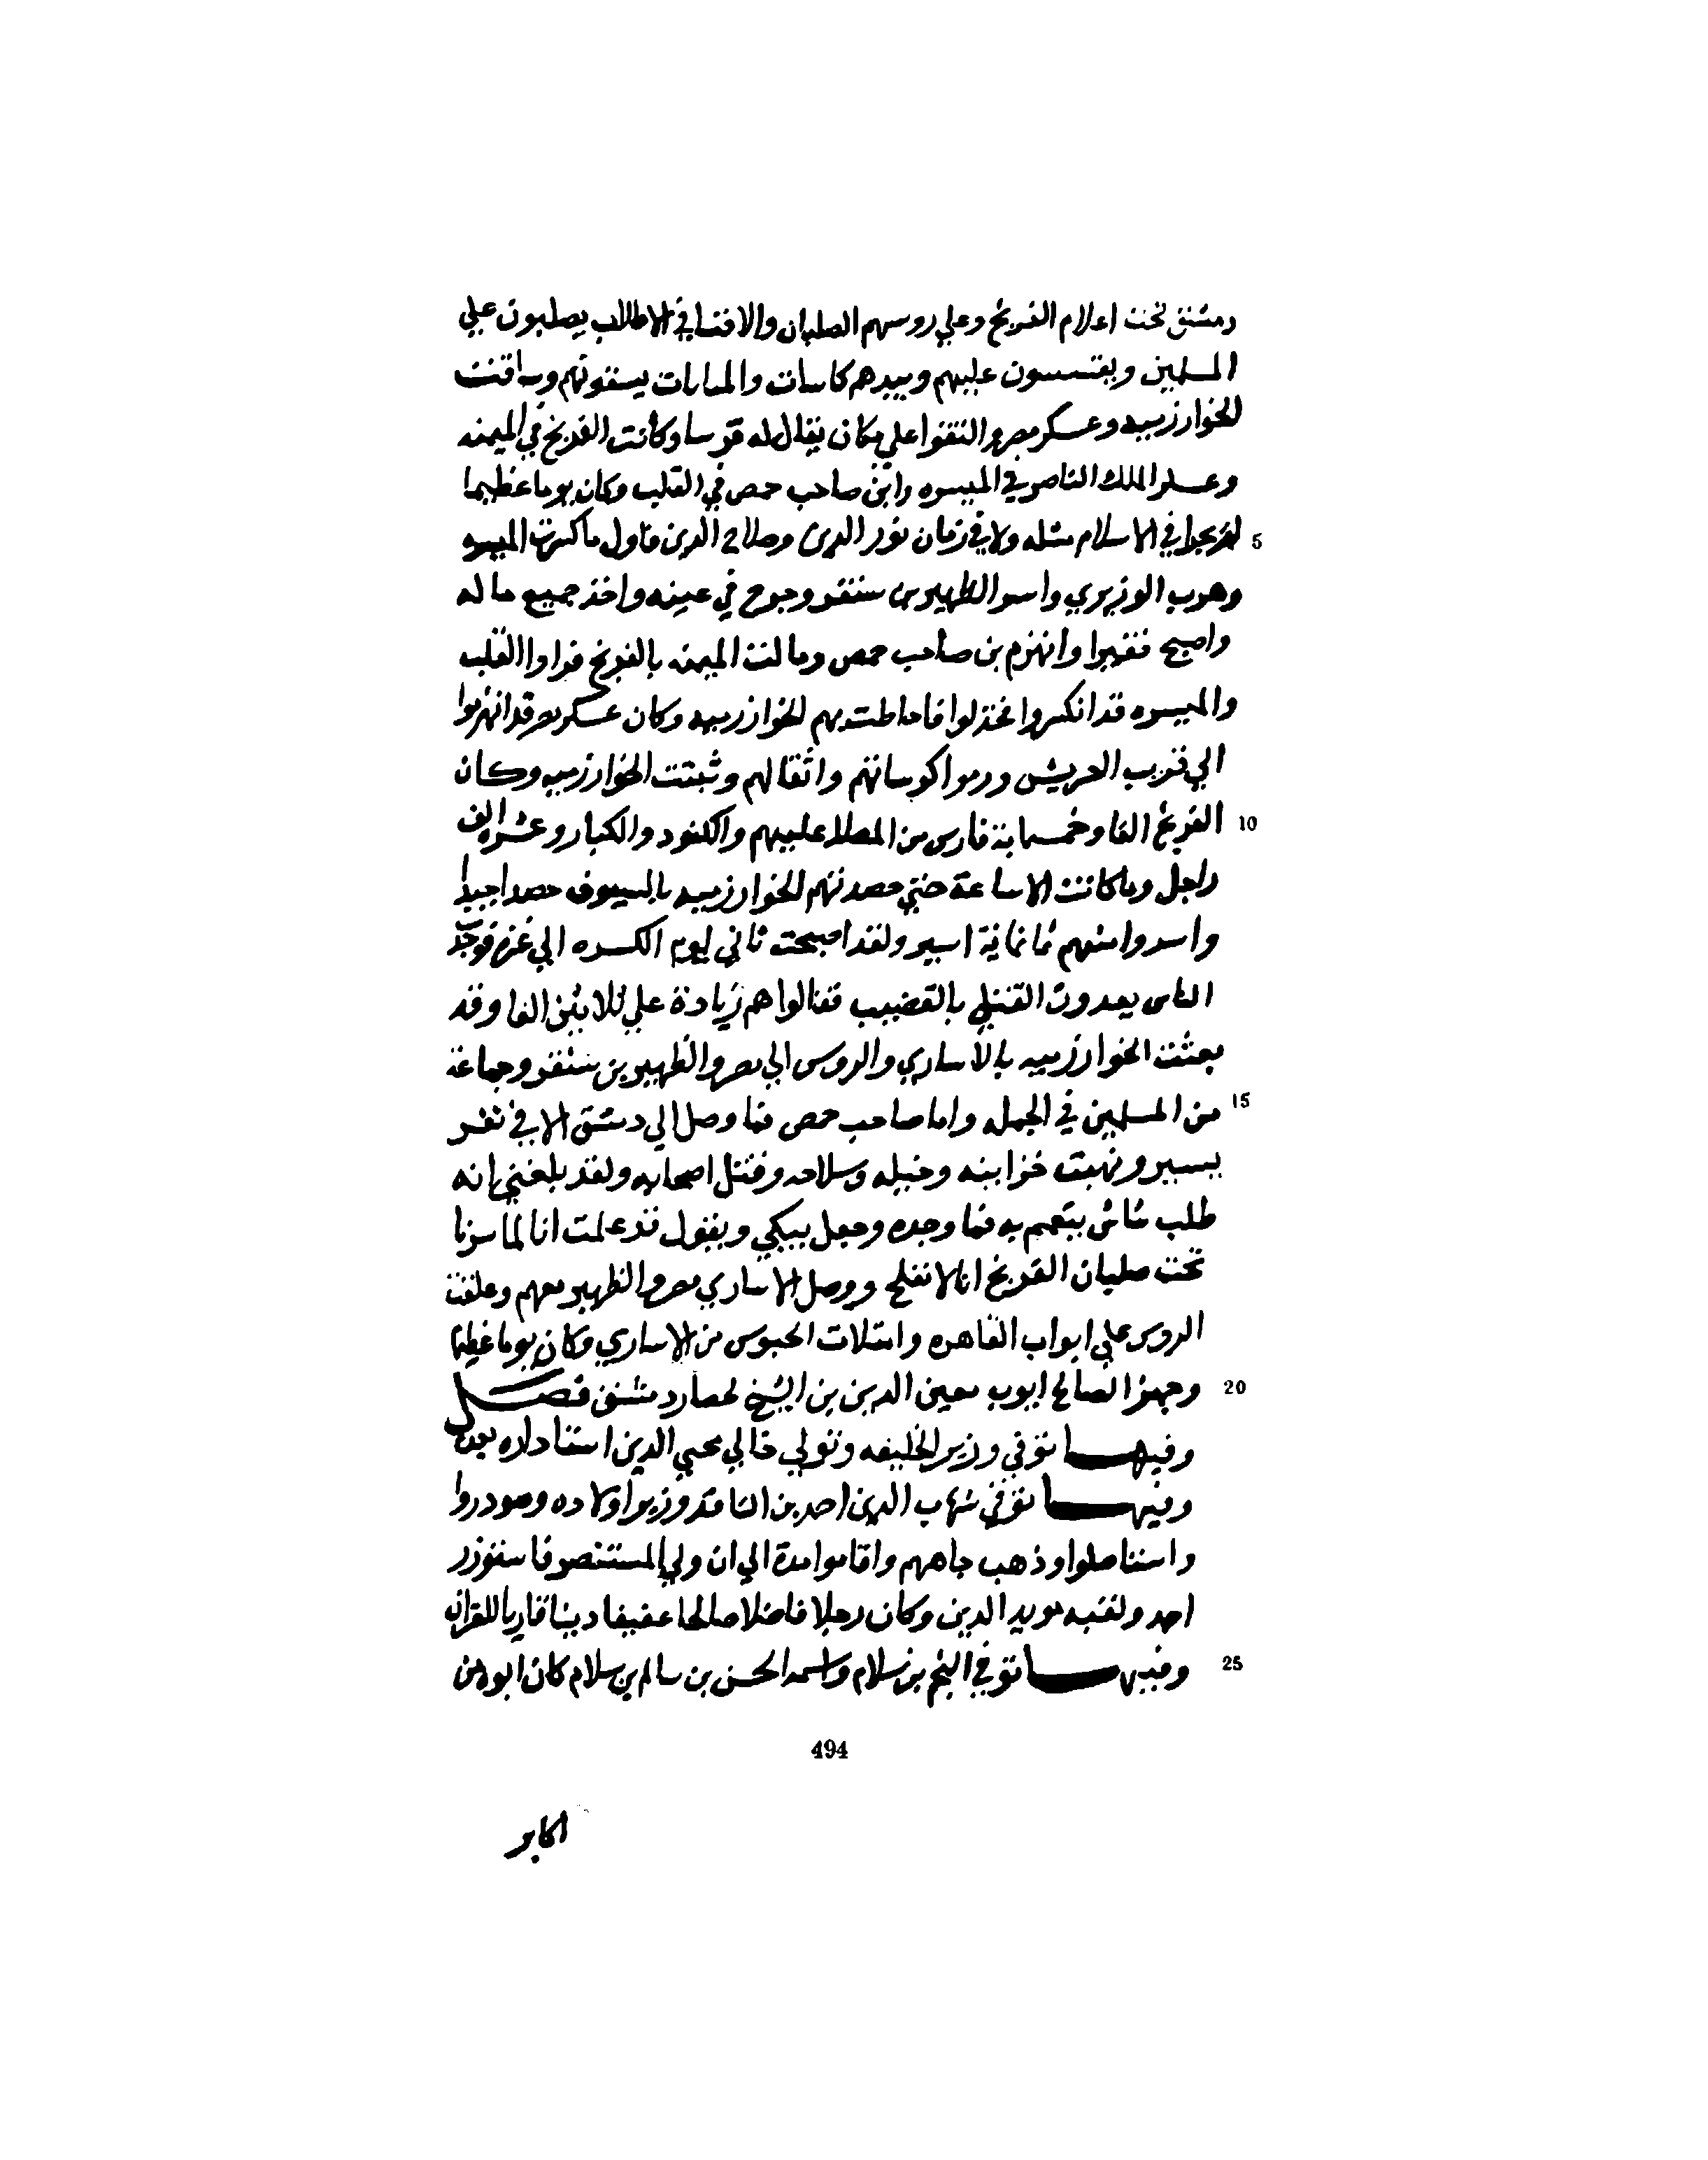 دمشق تحت اعلام الفرنج وعلي روسهم الصلبان والاقسا في الاطلاب يصلبون علي
المسلمين ويقسسون عليهم وبيدهم كاسات والهنابات يسقونهم وساقت
الخوارزميه وعسكر مصر والتقوا علي مكان يقال له قرسا وكانت الفرنج في الميمنه
وعسكر الملك الناصر في الميسره وابن صاحب حمص في القلب وكان يوما عظيما
لم يجر في الاسلام مثله ولا في زمان نور الدين وصلاح الدين فاول ما كسرت الميسره
وهرب الوزيري واسر الظهير بن سنقر وجرح في عينه واخذ جميع ماله
واصبح فقيرا وانهزم بن صاحب حمص ومالت الميمنه بالفرنج فراوا القلب
والميسره قد انكسروا فاحاطت بهم الخوارزميه وكان عسكر مصر قد انهزموا
الي قرب العريش ورموا كوساتهم واثقالهم وثبتت الخوارزميه وكان
الفرنج الفا وخمسماية فارس من عليهم والكنود والكبار وعشره الف
راجل وما كانت الا ساعة حتي حصدتهم الخوارزميه بالسيوف حصدا جيدا
واسروا منهم ثمانماية اسير ولقد اصبحت ثاني يوم الكسره الي غزه فوجدت
الناس يعدون القتلي بالقضيب فقالوا هم زيادة علي ثلاثين الفا وقد
بعثت الخوارزميه بالاساري والروس الي مصر والظهير بن سنقر وجماعة
من المسلمين في الجمله واما صاحب حمص فما وصل الي دمشق الا في نفر
يسير ونهبت خزاينه وخيله وسلاحه وقتل اصحابه ولقد بلغني انه
طلب شاش يتعمم به فما وجده وجعل يبكي ويقول قد علمت انا لما سرنا
تحت صلبان الفرنج انا لا نفلح ووصل الاساري مصر والظهير معهم وعلقت
الروس علي ابواب القاهره وامتلات الحبوس من الاساري وكان يوما عظيما
وجهز الصالح ايوب معين الدين بن الشيخ لحصار دمشق فصل
وفيها توفي وزير الخليفه وتولي خالي محيي الدين استاد داره
وفيها توفي شهاب الدين احمد بن الناقد وزير اولاده وصودروا
واستاصلوا وذهب جاههم واقاموا مدة الي ان ولي المستنصر فاستوزر
احمد ولقبه مويد الدين وكان رجلا فاضلا صالحا عفيفا دينا قاريا للقران
وفيها توفي النجم بن سلام واسمه الحسن بن سالم بن سلام كان ابوه من
5
10
15
20
25
494
اكابر